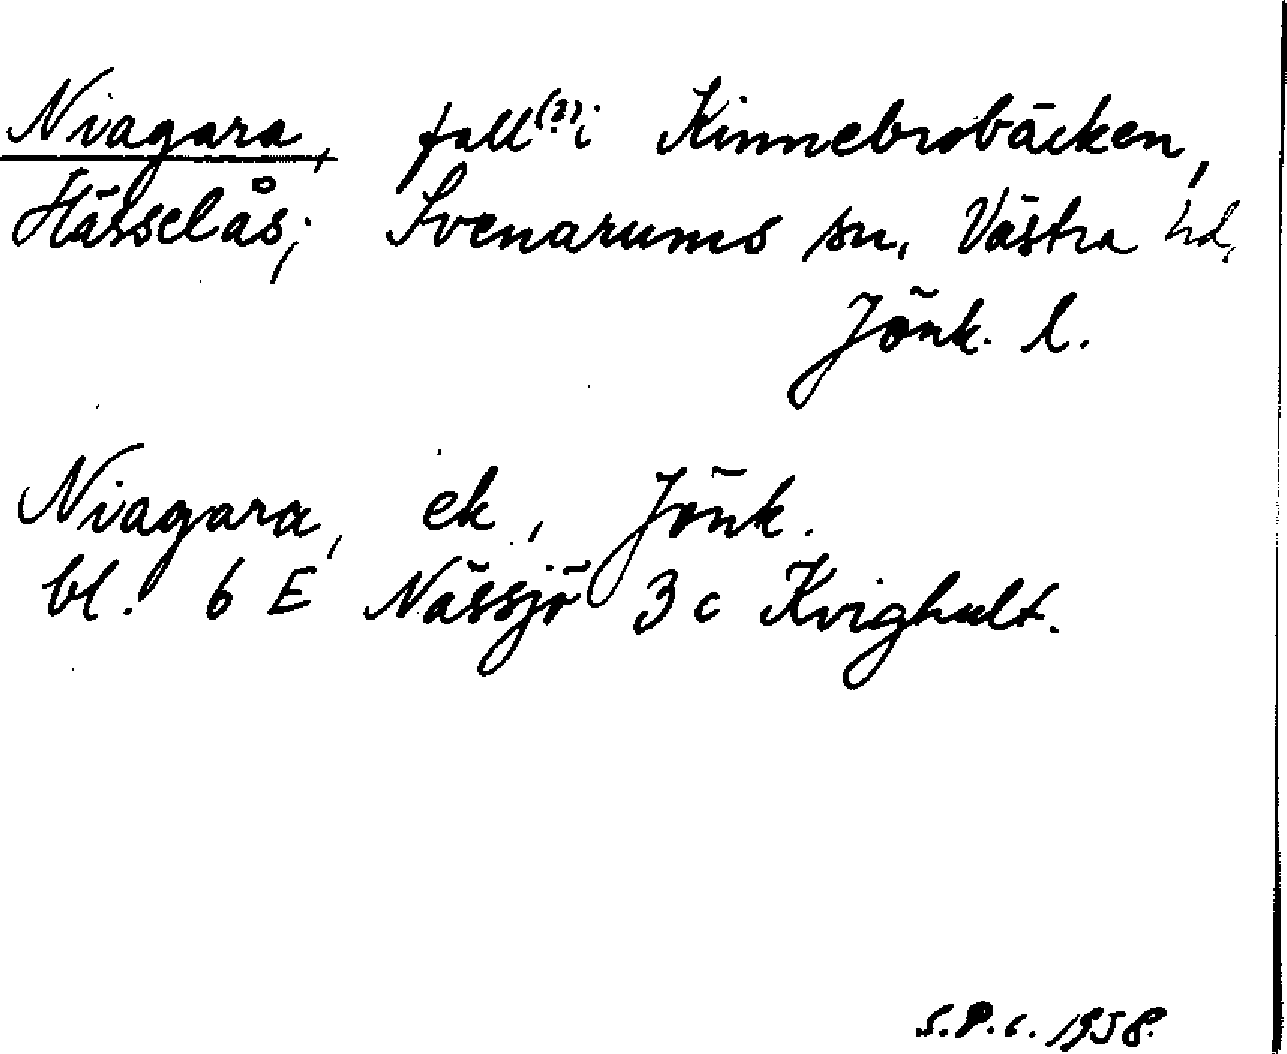 Niagara, fall(?) i Kinnebrobäcken,
Hässelås; Svenarums sn, Västra hd,
Jönk. l.
Niagara, ek, Jönk.
bl. 6 E Nässjö 3 c Kvighult.
S.P.c. 1958.